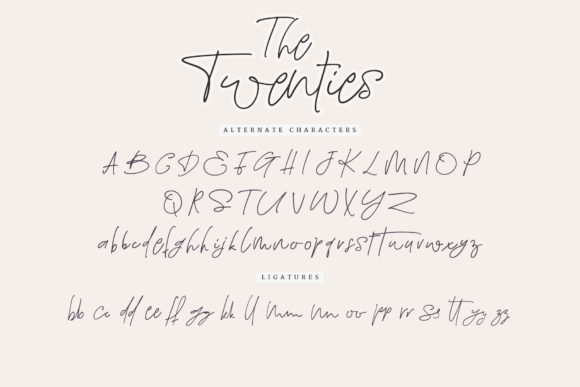 The
Twenties
ALTERNATE CHARACTERS
A B C D E F G H I J K L M N O P
Q R S T U V W X Y Z
abbcdefghhijklmnoopqrssttuvwxyz
LIGATURES
bb cc dd ee ff gg kk ll mm nn oo pp rr ss tt yy zz